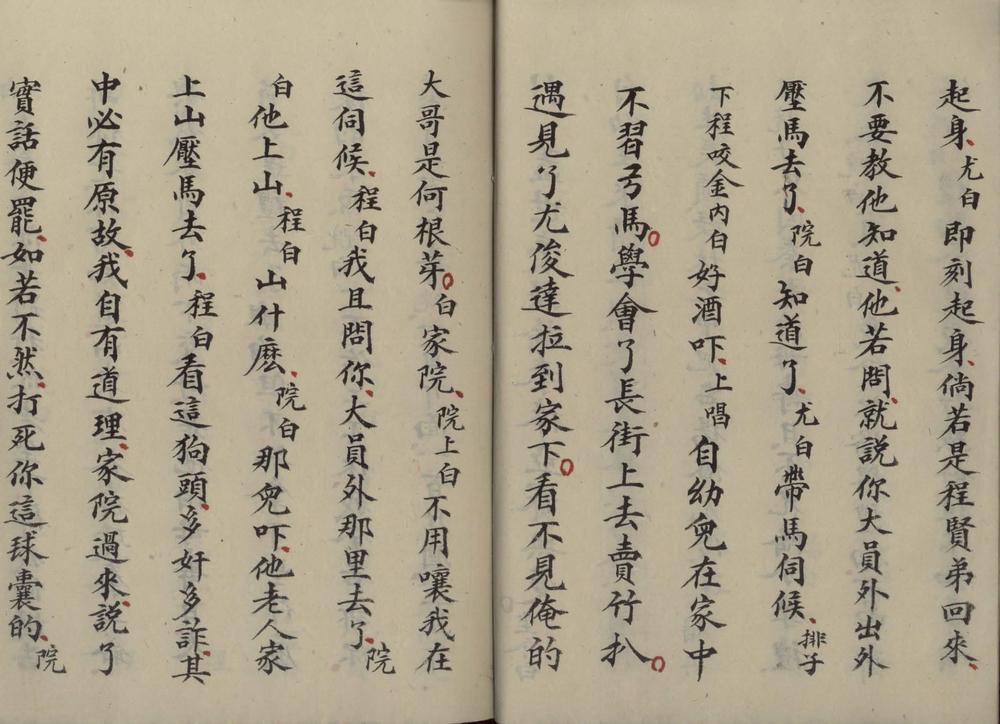 起身尤白即刻起身倘若是程賢弟回來
不要教他知道他若問就説你大員外出外
壓馬去了院白知道了尤白帶馬伺候排子
下程咬金内白好酒吓上唱自幼兒在家中
不習弓馬學會了長街上去賣竹扒
遇見了尤俊達拉到家下看不見俺的
大哥是何根芽白家院院上白不用嚷我在
這伺候程白我且問你大員外那里去了院
白他上山程白山什麽院白那兒吓他老人家
上山壓馬去了程白看這狗頭多奸多詐其
中必有原故我自有道理家院過來説了
實話便罷如若不然打死你這球囊的院